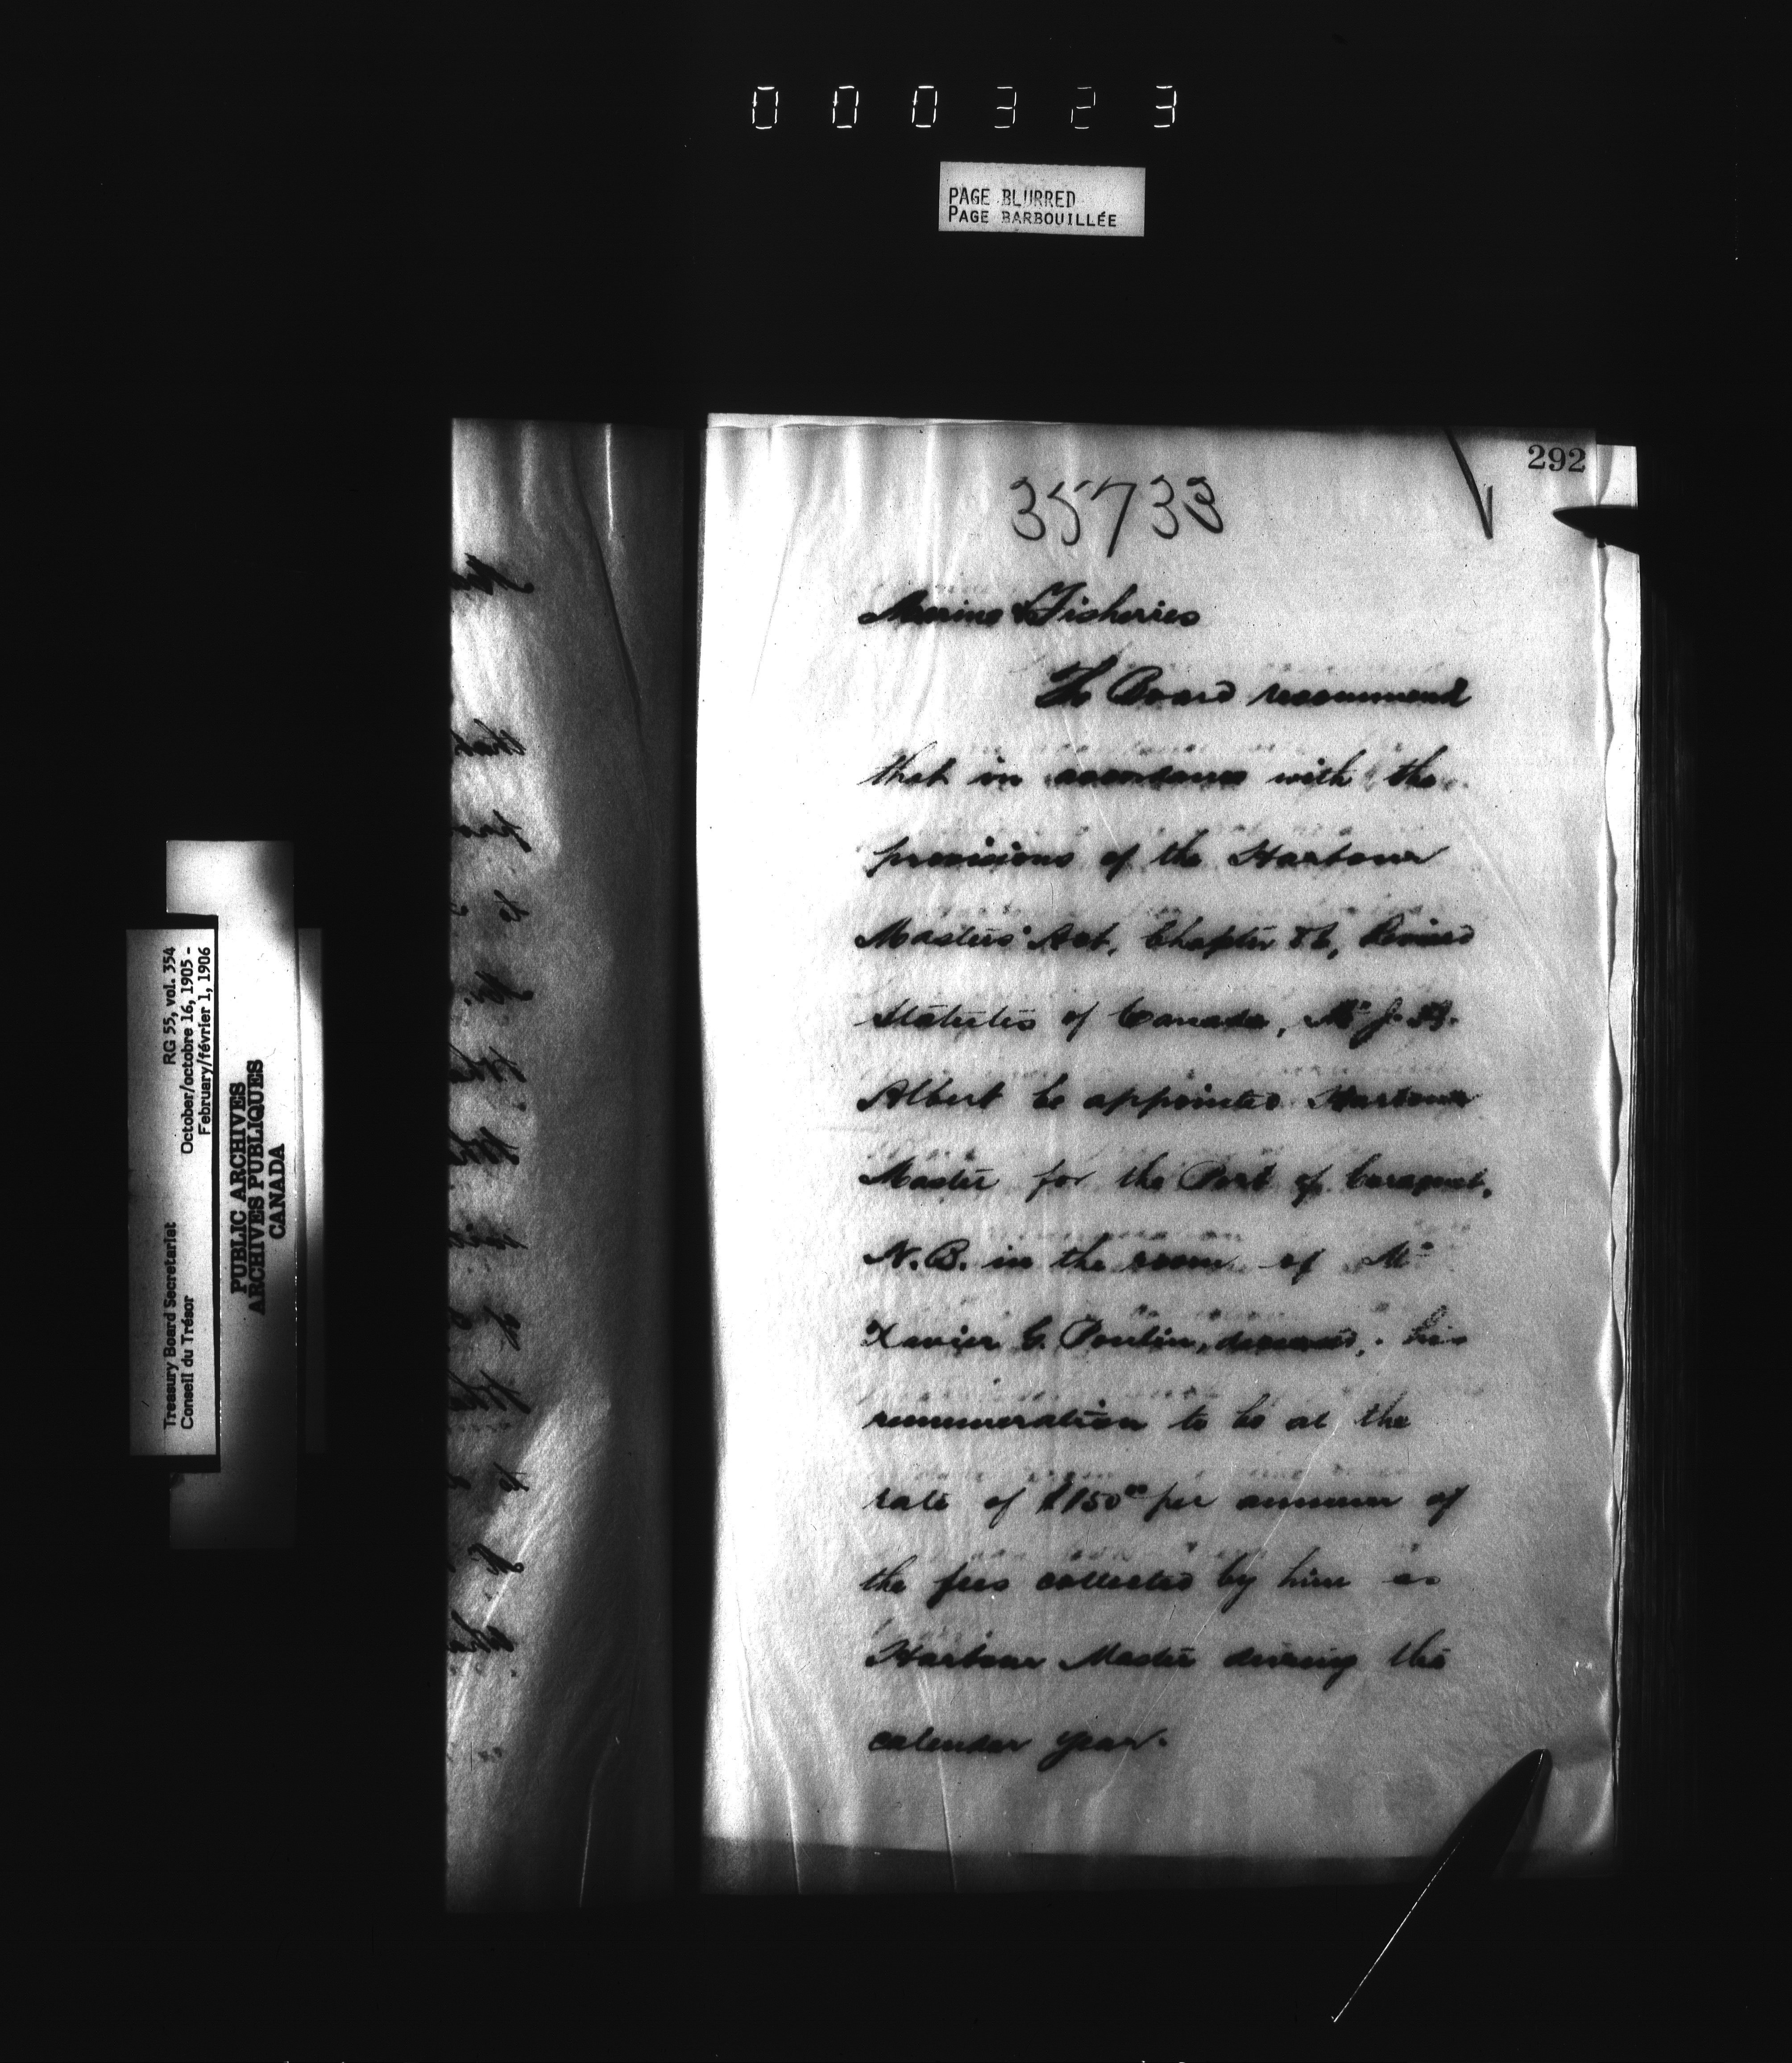 000323
PAGE BLURRED
PAGE BARBOUILLÉE
292
35733
Marine & Fisheries
The Board recommend
that in accordance with the
provisions of the Harbour
Masters' Act, Chapter 86, Revised
Statutes of Canada, Mr J.
Albert be appointed Harbour
Master for the Port of Caraquet,
N.B. in the room of Mr
Xavier G. Poulin, deceased, his
remuneration to be at the
rate of $150.00 per annum of
the fees collected by him as
Harbour Master during the
calendar year.
Treasury Board Secretariat RG 55, vol. 354
Conseil du Trésor October/octobre 16, 1905 -
February/février 1, 1906
PUBLIC ARCHIVES
ARCHIVES PUBLIQUES
CANADA